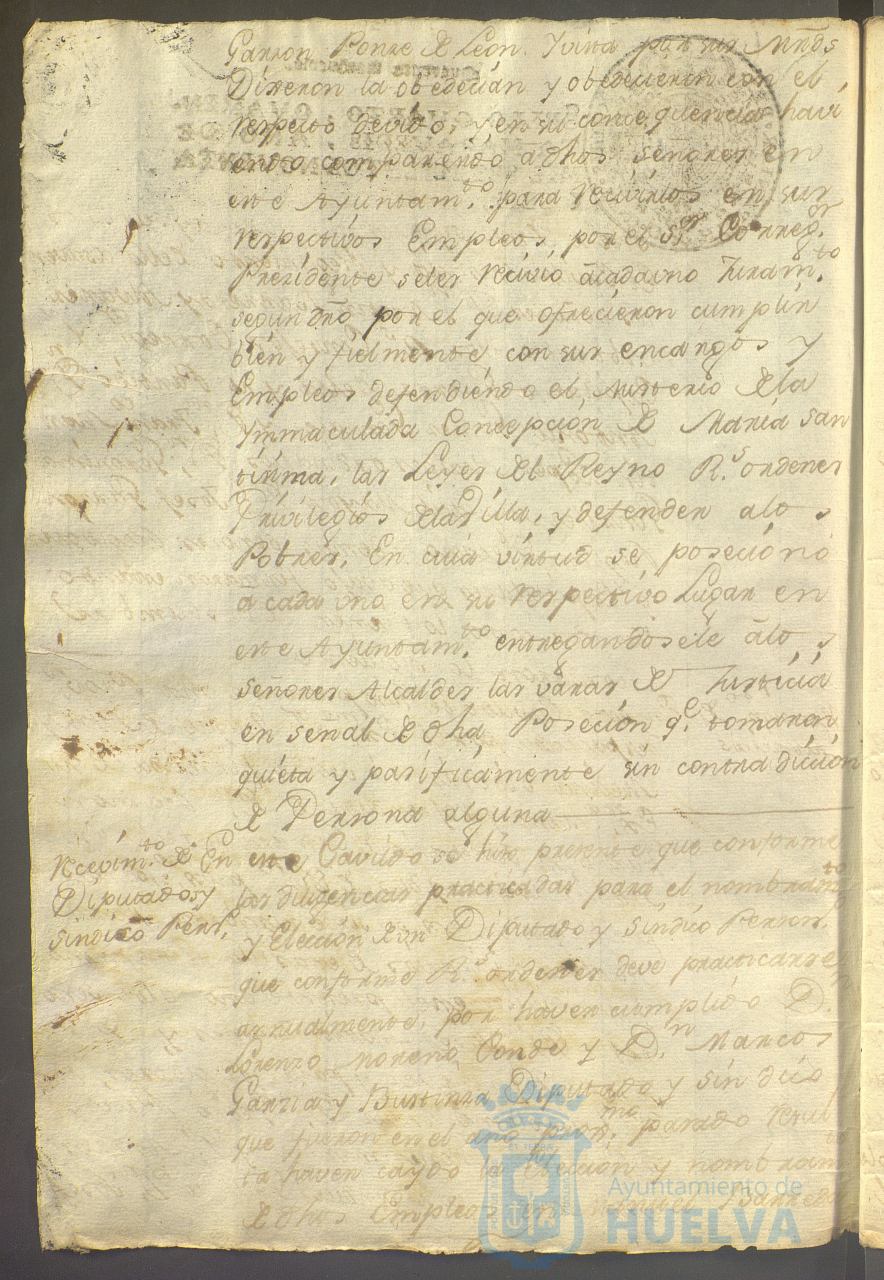 Garzon Ponze de Leon. Vista por sus Mrds
Dixeron la obedecian y obedecieron con el
respecto devido, y en su conseqüencia havi
endo comparendo a dhos señores en
este Ayuntam.to para recivirlos en sus
respectivos Empleos, por el S.or Correg.or
Presidente seles recivió acadauno Juram.to
segun dro por el que ofrecieron cumplir
bien y fielmente con sus encargos y
Empleos defendiendo el Misterio de la
Ymmaculada Concepcion de Maria San
tisima, las Leyes del Reyno R.s ordenes
Privilegios de la Villa, y defender alos
Pobres, En cuia virtud se posecionó
a cada uno en su respectivo Lugar en
este Ayuntam.to entregandosele alos
señores Alcaldes las varas de Justicia
en señal de dha Poseción q.e tomaron
quieta y pacificamente sin contradicion
de Persona alguna
Recevim.to de
Diputados y
sindico Pers.
En este Cavildo se hizo presente que conforme
las diligencias practicadas para el nombram.to
y Elección de un Diputado y Sindico Person.
que conforme R.s ordenes deve practicarse
annualmente, por haver cumplido D.n
Lorenzo Moreno Conde y D.n Marcos
Garzia y Bustinza Diputado y sindico
que fueron en el año prox.mo pasado resul
ta haver caydo la Elección y nombram.to
de dhos Empleos en
Ayuntamiento de
HUELVA